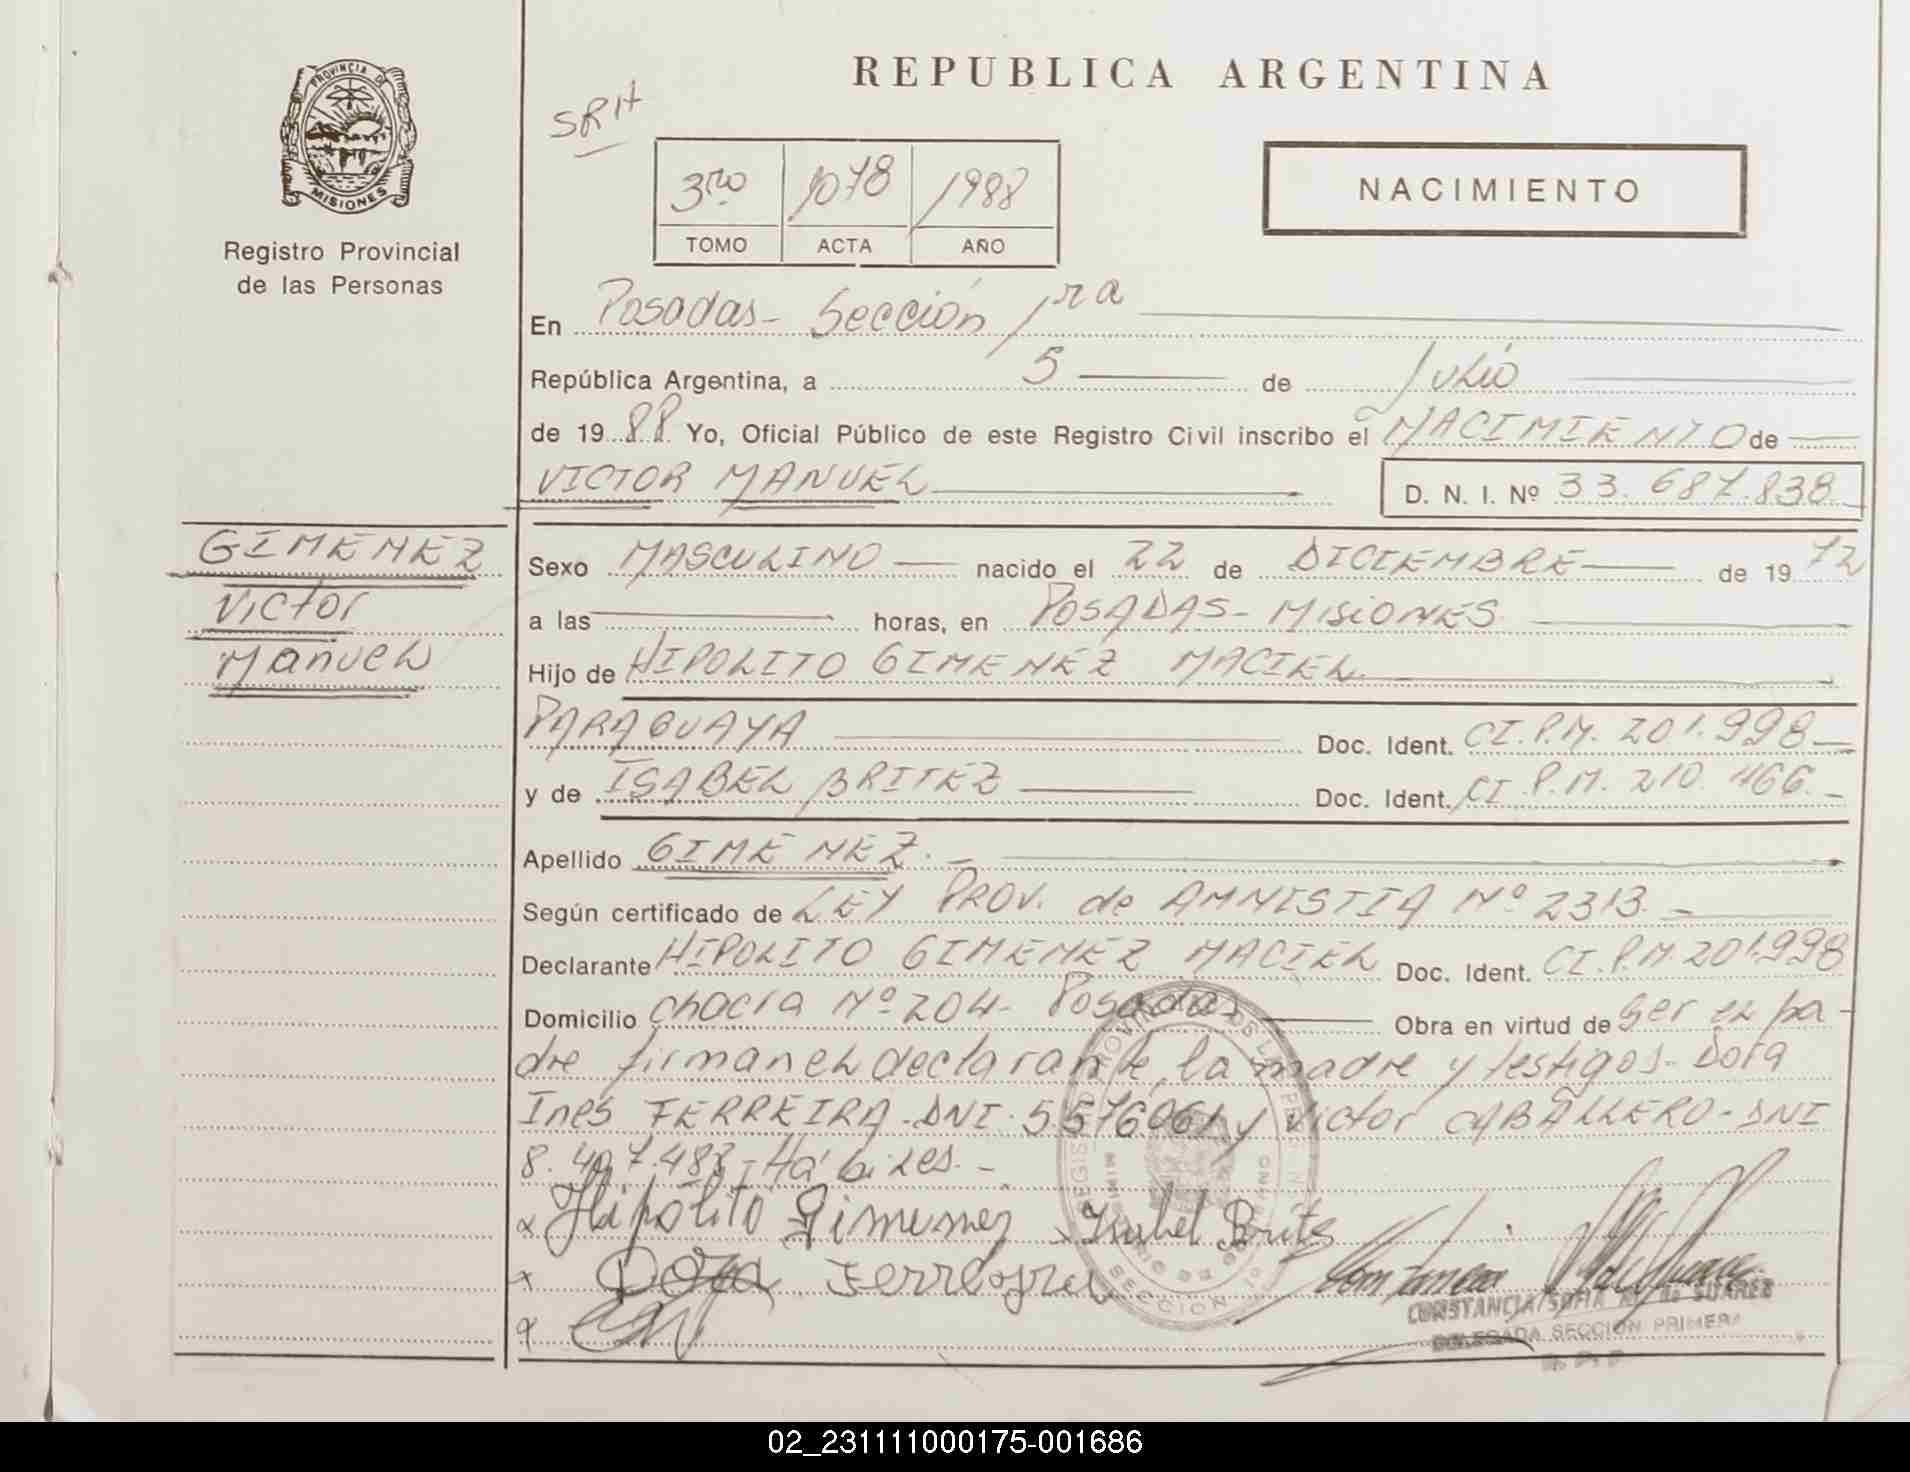 PROVINCIA DE
MISIONES
Registro Provincial
de las Personas
GIMENEZ
Victor
Manuel
REPUBLICA ARGENTINA
SRH
3ro 1078 1988
TOMO ACTA AÑO
NACIMIENTO
En Posadas - Sección 1ra
República Argentina, a 5 de Julio
de 1988 Yo, Oficial Público de este Registro Civil inscribo el NACIMIENTO de
VICTOR MANUEL D. N. I. Nº 33.687.838
Sexo MASCULINO nacido el 22 de DICIEMBRE de 1972
a las horas, en POSADAS - MISIONES
Hijo de HIPOLITO GIMENEZ MACIEL
PARAGUAYA Doc. Ident. CI.P.M. 201.998
y de ISABEL BRITEZ Doc. Ident. CI P.M. 210.466
Apellido GIMENEZ.
Según certificado de LEY PROV. de AMNISTIA Nº 2313.
Declarante HIPOLITO GIMENEZ MACIEL Doc. Ident. CI.P.M. 201.998
Domicilio chacra Nº 204 - Posadas Obra en virtud de ser el pa-
dre firman el declarante, la madre y testigos - Dora
Inés FERREIRA - DNI. 5576061 y Victor CABALLERO - DNI
8.407.483 - Hábiles. -
x Hipólito Gimenez x Isabel Brits
x Dora Ferreyra
x
CONSTANCIA SOFIA DE SUAREZ
DELEGADA SECCION PRIMERA
R. P. P
SECCION
02_231111000175-001686